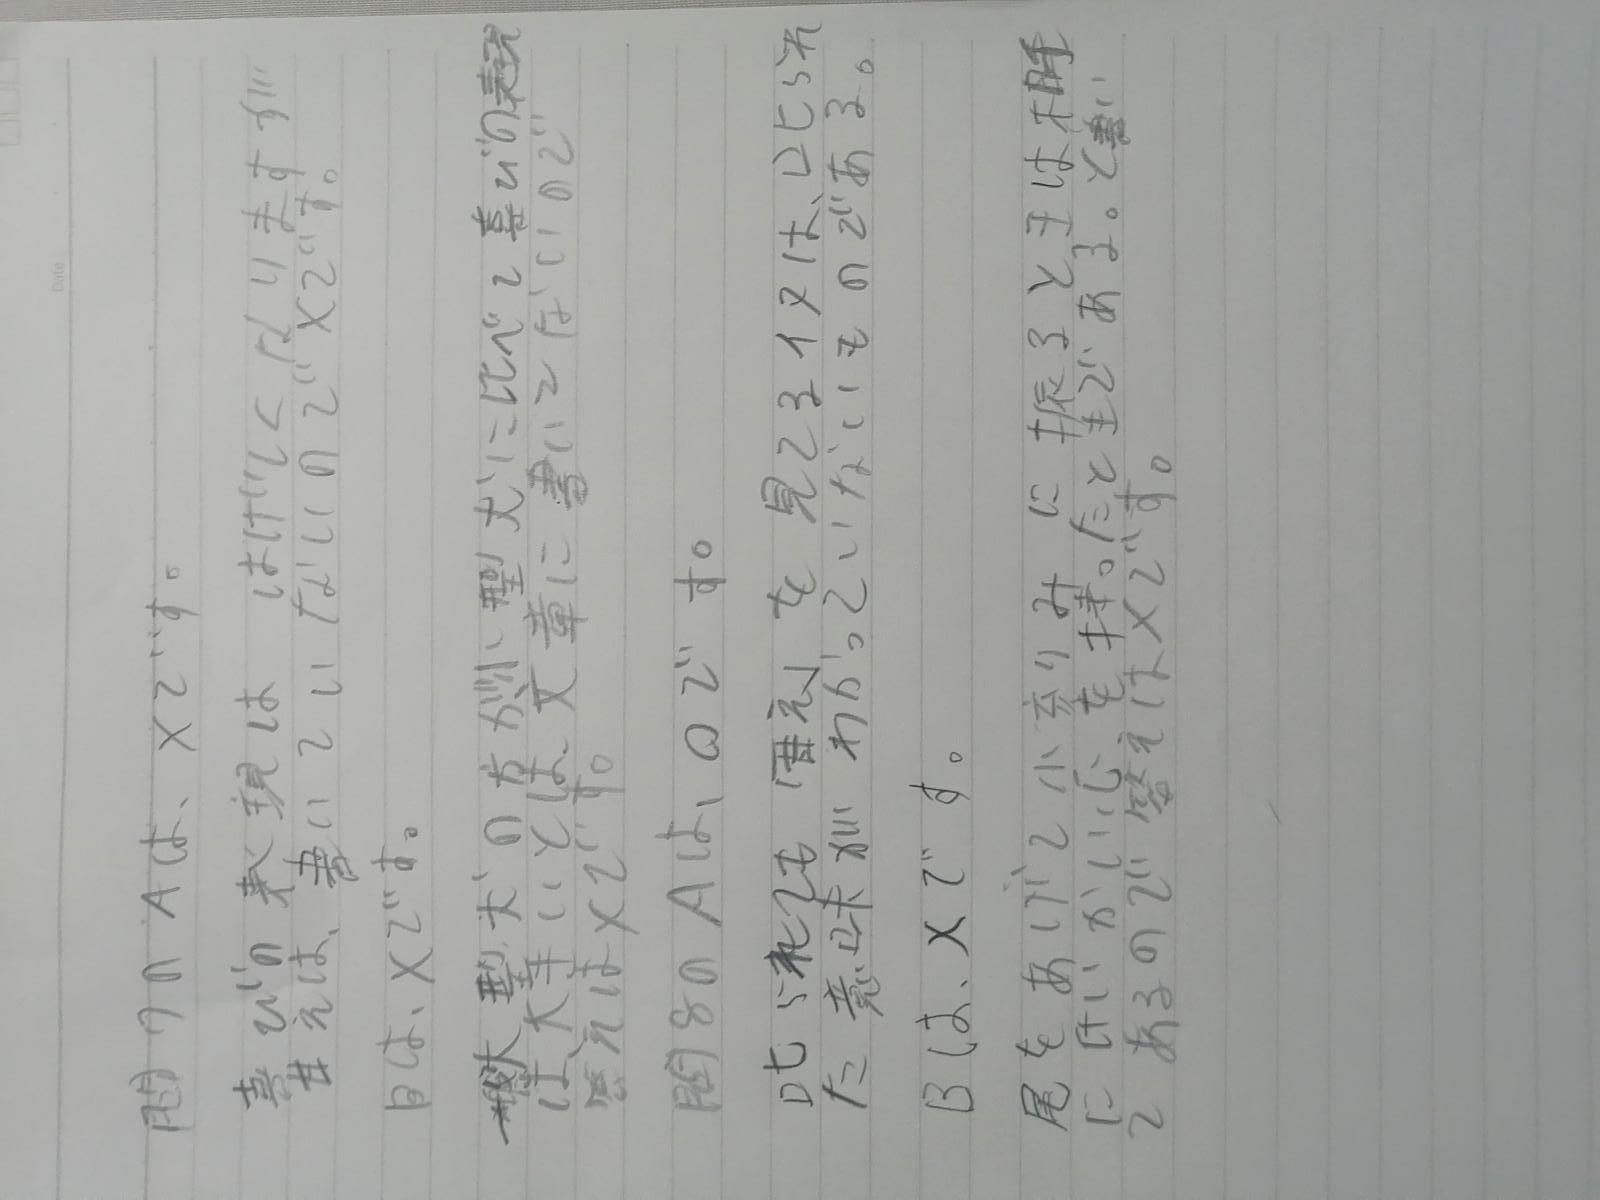 Date
問7のAは、×です。
喜びの表現は はげしくなりますが
甘えは、書いていないので×です。
Bは、×です。
大型犬の方が小型犬に比べて喜びの表現
は大事いとは、文章に書いてないので
答えは×です。
問8のAは、○です。
叱られても 笛を見てるイヌは、叱られ
た意味がわかっていないものである。
Bは、×です。
尾をあげて小刻みに振るときは相手
にけいかい心を持ったときである。と書い
てあるので答えは×です。